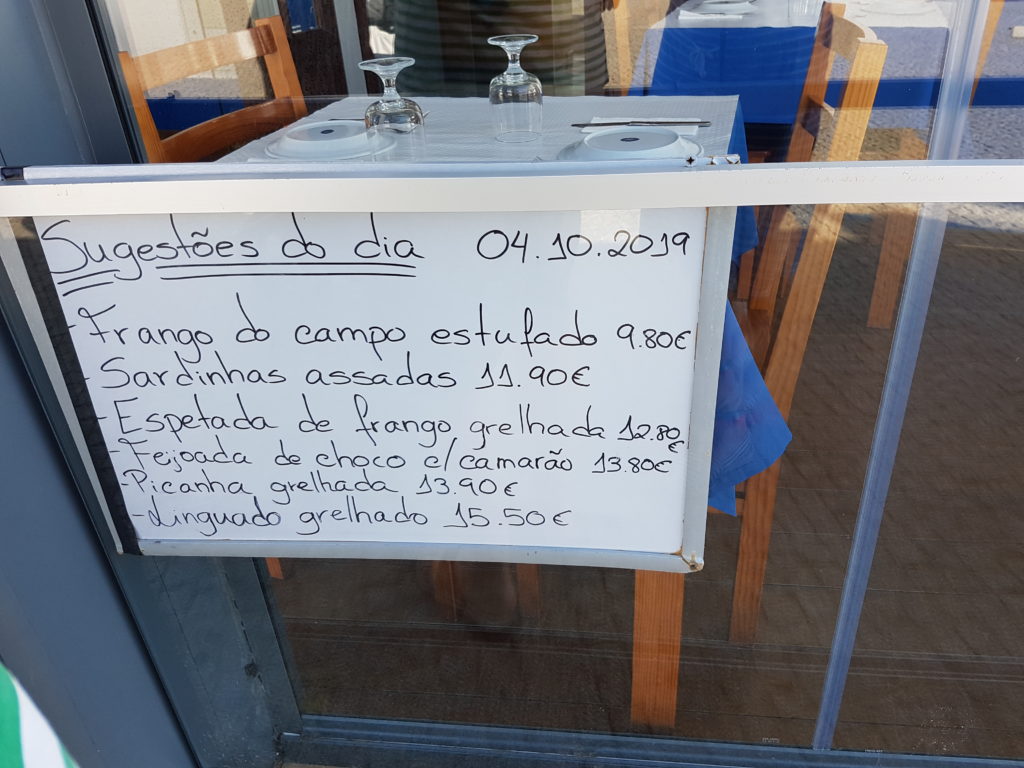 Sugestões do dia 04.10.2019
- Frango do campo estufado 9.80€
- Sardinhas assadas 11.90€
- Espetada de frango grelhada 12.80€
- Feijoada de choco c/camarão 13.80€
- Picanha grelhada 13.90€
- Linguado grelhado 15.50€